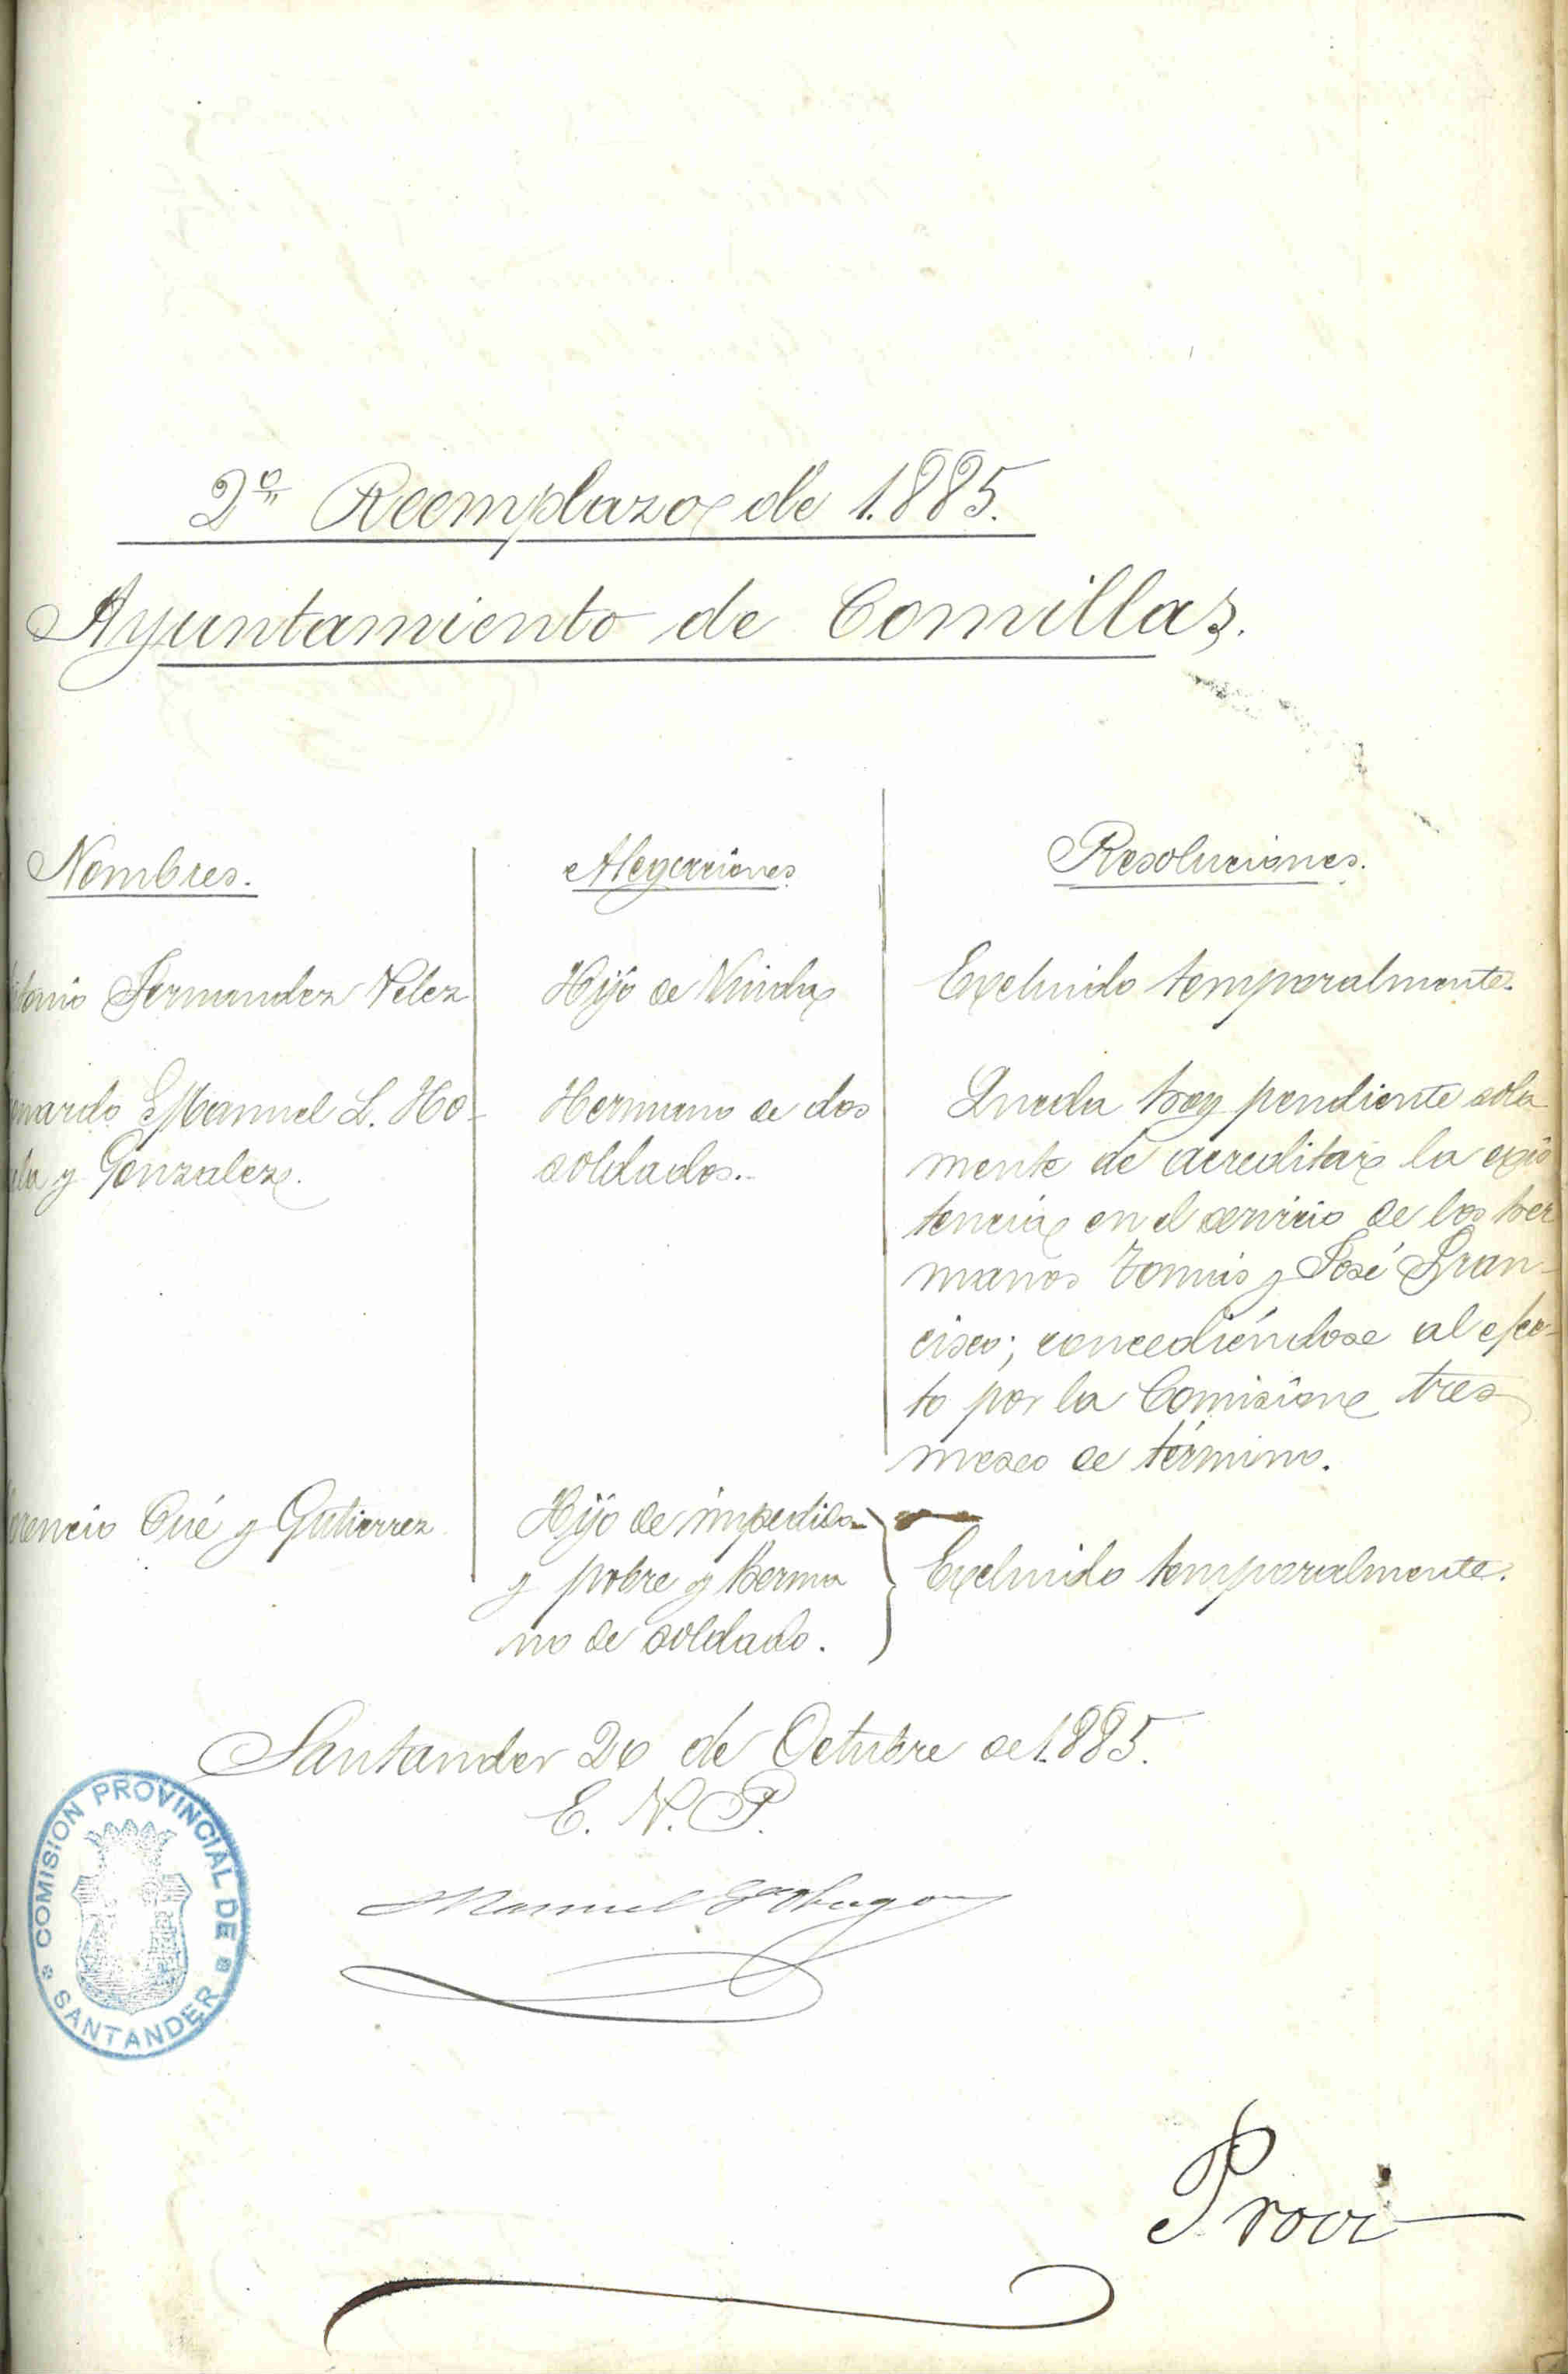 2º Reemplazo de 1.885.
Ayuntamiento de Comillas.
Nombres.
Alegaciones
Resoluciones.
tonio Fernandez Velez
Hijo de Viuda
Excluido temporalmente.
nardo Manuel L. Ho-
la y Gonzalez.
Hermano de dos
soldados.-
Queda hoy pendiente sola
mente de acreditar la exis
tencia en el servicio de los her
manos Tomás y José Fran-
cisco; concediéndose al efec-
to por la Comision tres
meses de término.
rencio Cué y Gutierrez
Hijo de impedido
y pobre y herma
no de soldado.
Excluido temporalmente.
Santander 20 de Octubre de 1.885.
E. V. P.
Manuel
COMISION PROVINCIAL DE
SANTANDER
Provi